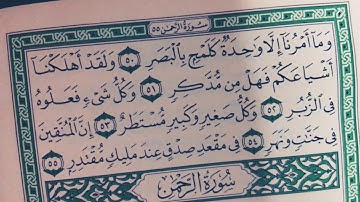 سورة الرحمن ٥٥
وَمَآ أَمْرُنَآ إِلَّا وَٰحِدَةٌ كَلَمْحٍۭ بِٱلْبَصَرِ ٥٠ وَلَقَدْ أَهْلَكْنَآ
أَشْيَاعَكُمْ فَهَلْ مِن مُّدَّكِرٍ ٥١ وَكُلُّ شَىْءٍ فَعَلُوهُ
فِى ٱلزُّبُرِ ٥٢ وَكُلُّ صَغِيرٍ وَكَبِيرٍ مُّسْتَطَرٌ ٥٣ إِنَّ ٱلْمُتَّقِينَ
فِى جَنَّٰتٍ وَنَهَرٍ ٥٤ فِى مَقْعَدِ صِدْقٍ عِندَ مَلِيكٍ مُّقْتَدِرٍۭ ٥٥
سُورَةُ ٱلرَّحْمَٰن